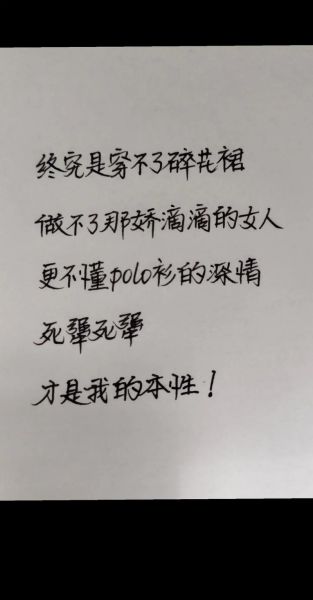 终究是穿不了碎花裙
做不了那娇滴滴的女人
更不懂polo衫的深情
死犟死犟
才是我的本性！